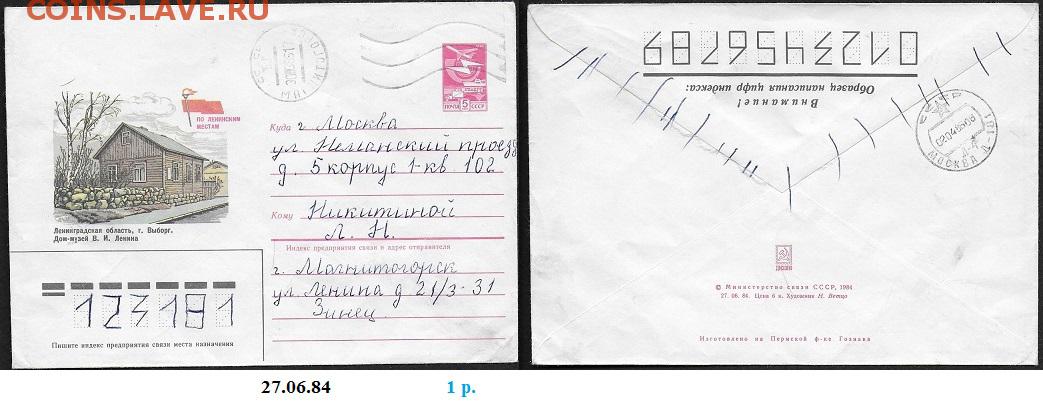 COINS.LAVE.RU
ПОЧТА СССР
5
ПО ЛЕНИНСКИМ
МЕСТАМ
Ленинградская область, г. Выборг.
Дом-музей В. И. Ленина
Куда г. Москва
ул. Неманский проезд
д. 5 корпус 1-кв 102
Кому Никитиной
Л. Н.
Индекс предприятия связи и адрес отправителя
г. Магнитогорск
ул. Ленина д 21/3-31
Зинец
123181
Пишите индекс предприятия связи места назначения
0123456789
Образец написания цифр индекса:
Внимание!
МОСКВА Д-181
© Министерство связи СССР, 1984
27. 06. 84. Цена 6 к. Художник Н. Ветцо
Изготовлено на Пермской ф-ке Гознака
27.06.84
1 р.